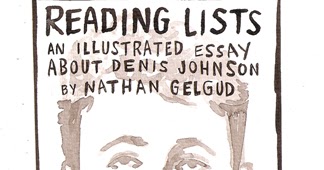 READING LISTS
AN ILLUSTRATED ESSAY
ABOUT DENIS JOHNSON
BY NATHAN GELGUD